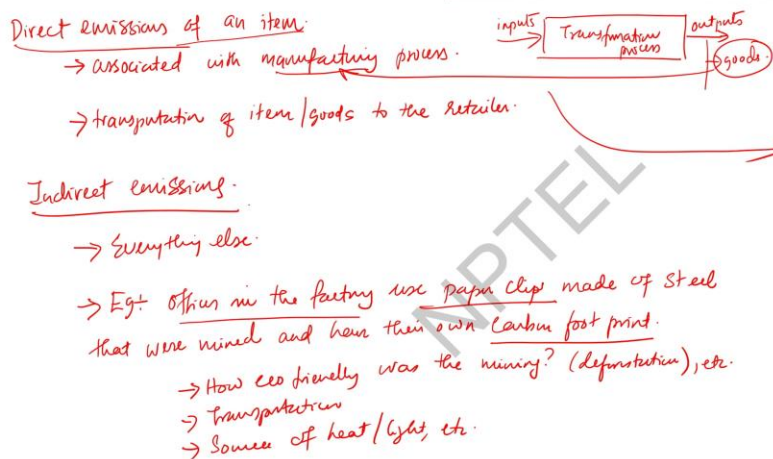 Direct emissions of an item.
inputs
Transformation process
outputs
goods.
→ associated with manufacturing process.
→ transportation of item/goods to the retailer.
Indirect emissions.
→ Everything else.
→ Eg:- offices in the factory use paper clips made of steel
that were mined and have their own carbon foot print.
→ How eco friendly was the mining? (deforestation), etc.
→ Transportation
→ Source of heat/light, etc.
NPTEL